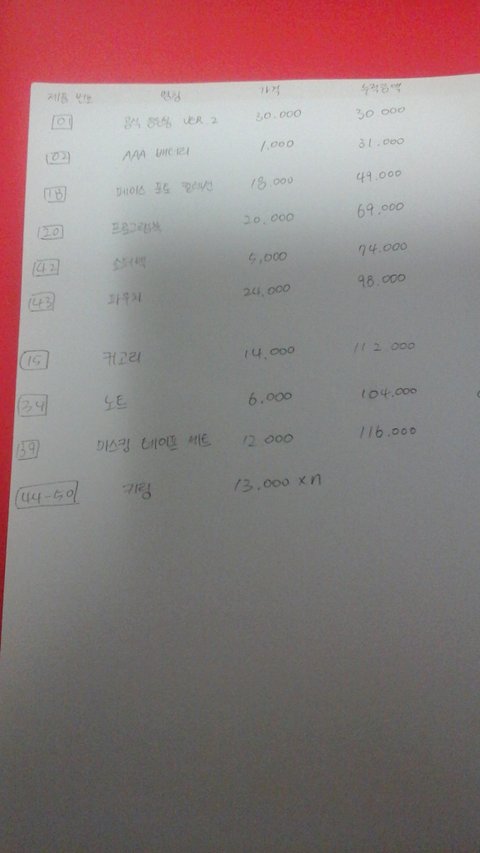 제품 번호 명칭 가격 누적금액
01 공식 응원봉 VER.2 30.000 30 000
02 AAA 배터리 1,000 31.000
18 페이스 포토 컬렉션 18 000 49.000
20 프로그램북 20.000 69,000
42 쇼퍼백 5,000 74.000
43 파우치 24,000 98.000
15 키고리 14,000 112 000
34 노트 6.000 104.000
39 마스킹 테이프 세트 12 000 116.000
44-50 키링 13.000 x n